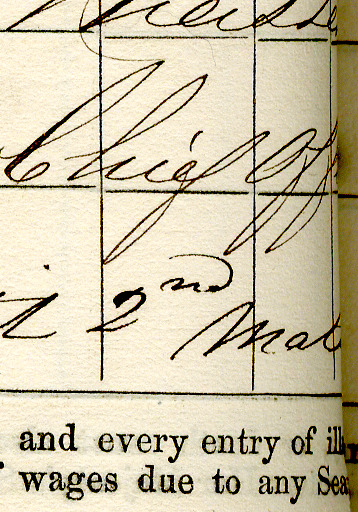 Chief Off
2nd Mat
and every entry of ill
wages due to any Sea